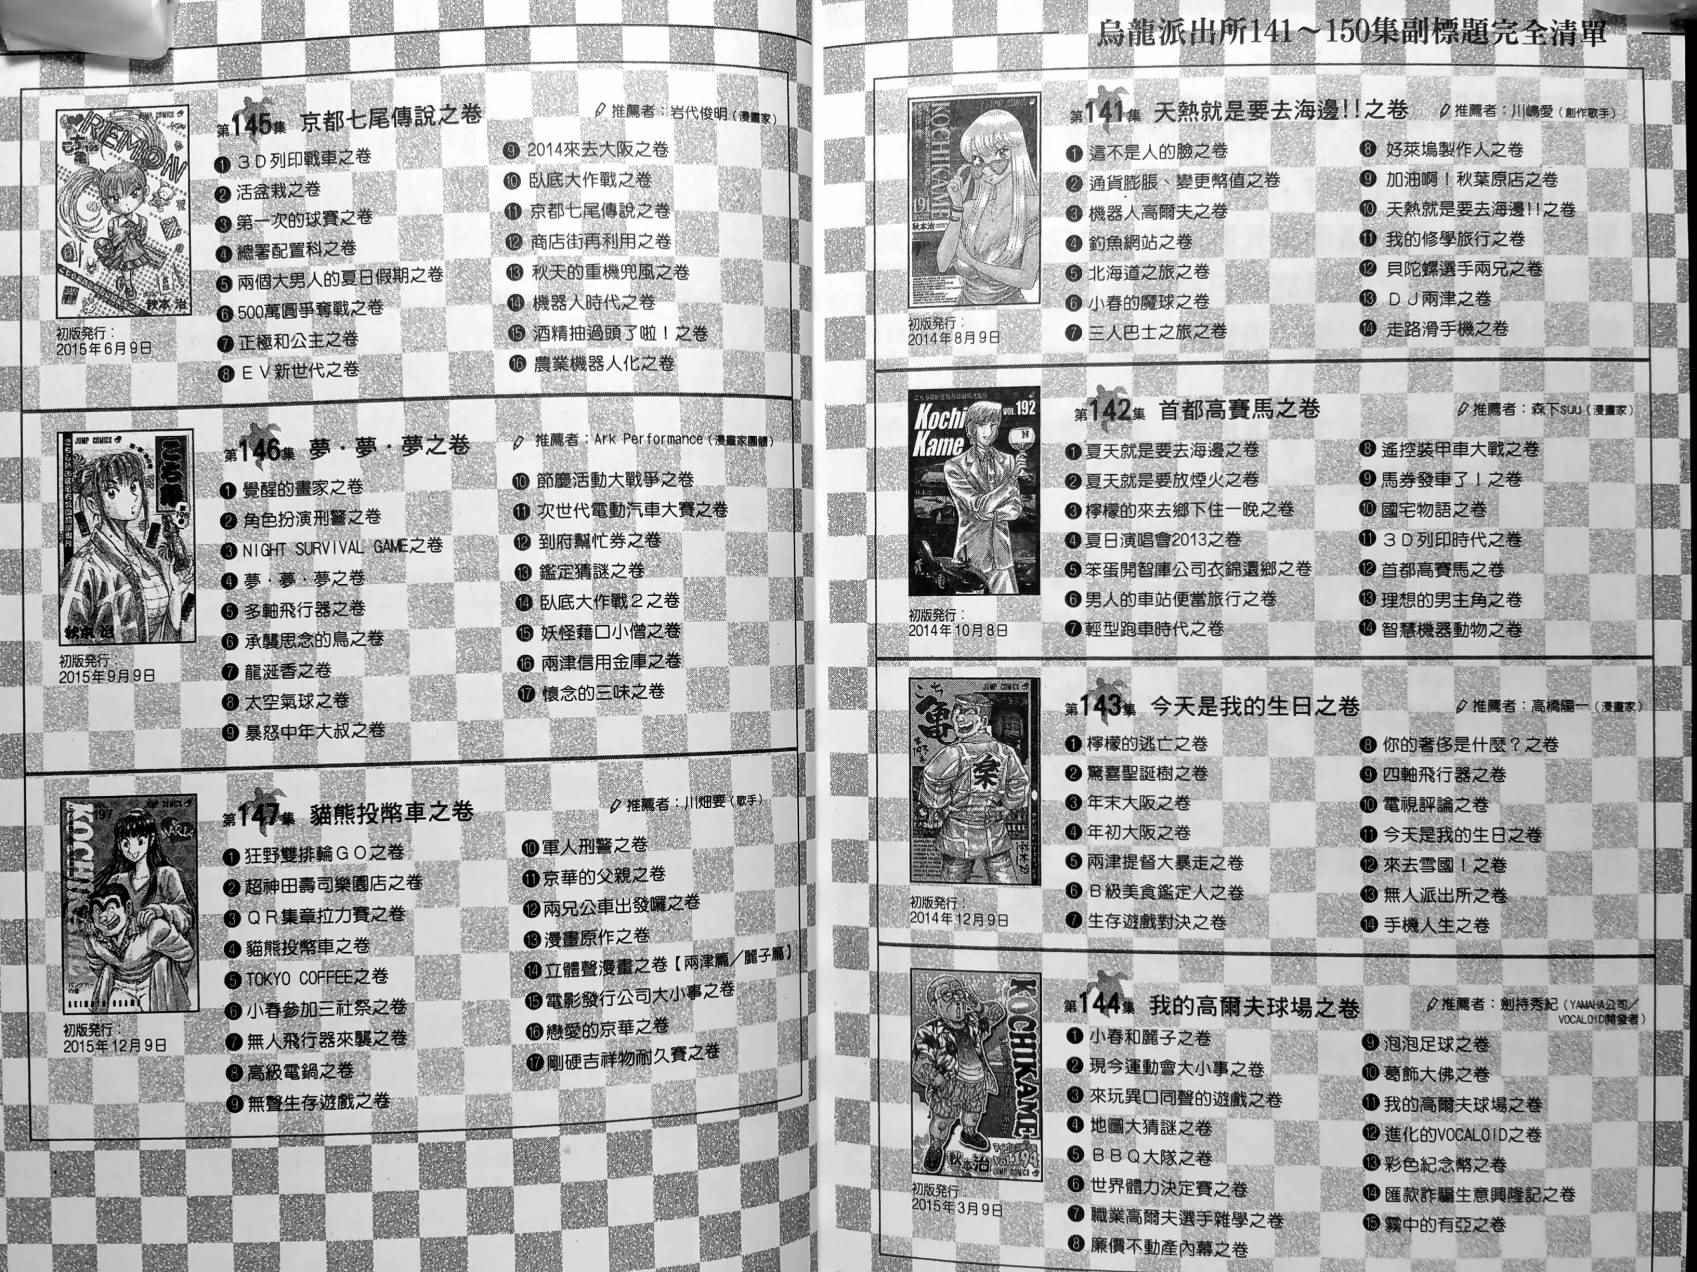 烏龍派出所141～150集副標題完全清單
第141集 天熱就是要去海邊!!之卷
推薦者：川嶋愛（創作歌手）
初版発行：
2014年8月9日
❶ 這不是人的臉之卷
❷ 通貨膨脹、變更幣值之卷
❸ 機器人高爾夫之卷
❹ 釣魚網站之卷
❺ 北海道之旅之卷
❻ 小春的魔球之卷
❼ 三人巴士之旅之卷
❽ 好萊塢製作人之卷
❾ 加油啊！秋葉原店之卷
❿ 天熱就是要去海邊!!之卷
⓫ 我的修學旅行之卷
⓬ 貝陀螺選手兩兄之卷
⓭ ＤＪ兩津之卷
⓮ 走路滑手機之卷
第142集 首都高賽馬之卷
推薦者：森下suu（漫畫家）
Kochi Kame VOL.192
初版発行：
2014年10月8日
❶ 夏天就是要去海邊之卷
❷ 夏天就是要放煙火之卷
❸ 檸檬的來去鄉下住一晚之卷
❹ 夏日演唱會2013之卷
❺ 笨蛋開智庫公司衣錦還鄉之卷
❻ 男人的車站便當旅行之卷
❼ 輕型跑車時代之卷
❽ 遙控裝甲車大戰之卷
❾ 馬券發車了！之卷
❿ 國宅物語之卷
⓫ ３Ｄ列印時代之卷
⓬ 首都高賽馬之卷
⓭ 理想的男主角之卷
⓮ 智慧機器動物之卷
第143集 今天是我的生日之卷
推薦者：高橋陽一（漫畫家）
初版発行：
2014年12月9日
❶ 檸檬的逃亡之卷
❷ 驚喜聖誕樹之卷
❸ 年末大阪之卷
❹ 年初大阪之卷
❺ 兩津提督大暴走之卷
❻ Ｂ級美食鑑定人之卷
❼ 生存遊戲對決之卷
❽ 你的奢侈是什麼？之卷
❾ 四軸飛行器之卷
❿ 電視評論之卷
⓫ 今天是我的生日之卷
⓬ 來去雪國！之卷
⓭ 無人派出所之卷
⓮ 手機人生之卷
第144集 我的高爾夫球場之卷
推薦者：劍持秀紀（YAMAHA公司／
VOCALOID開發者）
KOCHIKAME
秋本治
初版発行：
2015年3月9日
❶ 小春和麗子之卷
❷ 現今運動會大小事之卷
❸ 來玩異口同聲的遊戲之卷
❹ 地圖大猜謎之卷
❺ ＢＢＱ大隊之卷
❻ 世界體力決定賽之卷
❼ 職業高爾夫選手雜學之卷
❽ 廉價不動產內幕之卷
❾ 泡泡足球之卷
❿ 葛飾大佛之卷
⓫ 我的高爾夫球場之卷
⓬ 進化的VOCALOID之卷
⓭ 彩色紀念幣之卷
⓮ 匯款詐騙生意興隆記之卷
⓯ 霧中的有亞之卷
第145集 京都七尾傳說之卷
推薦者：岩代俊明（漫畫家）
秋本 治
初版発行：
2015年6月9日
❶ ３Ｄ列印戰車之卷
❷ 活盆栽之卷
❸ 第一次的球賽之卷
❹ 總署配置科之卷
❺ 兩個大男人的夏日假期之卷
❻ 500萬圓爭奪戰之卷
❼ 正極和公主之卷
❽ ＥＶ新世代之卷
❾ 2014來去大阪之卷
❿ 臥底大作戰之卷
⓫ 京都七尾傳說之卷
⓬ 商店街再利用之卷
⓭ 秋天的重機兜風之卷
⓮ 機器人時代之卷
⓯ 酒精抽過頭了啦！之卷
⓰ 農業機器人化之卷
第146集 夢・夢・夢之卷
推薦者：Ark Performance（漫畫家團體）
JUMP COMICS
秋本 治
初版発行：
2015年9月9日
❶ 覺醒的畫家之卷
❷ 角色扮演刑警之卷
❸ NIGHT SURVIVAL GAME之卷
❹ 夢・夢・夢之卷
❺ 多軸飛行器之卷
❻ 承襲思念的鳥之卷
❼ 龍涎香之卷
❽ 太空氣球之卷
❾ 暴怒中年大叔之卷
❿ 節慶活動大戰爭之卷
⓫ 次世代電動汽車大賽之卷
⓬ 到府幫忙券之卷
⓭ 鑑定猜謎之卷
⓮ 臥底大作戰２之卷
⓯ 妖怪藉口小僧之卷
⓰ 兩津信用金庫之卷
⓱ 懷念的三味之卷
第147集 貓熊投幣車之卷
推薦者：川畑要（歌手）
初版発行：
2015年12月9日
❶ 狂野雙排輪ＧＯ之卷
❷ 超神田壽司樂園店之卷
❸ ＱＲ集章拉力賽之卷
❹ 貓熊投幣車之卷
❺ TOKYO COFFEE之卷
❻ 小春參加三社祭之卷
❼ 無人飛行器來襲之卷
❽ 高級電鍋之卷
❾ 無聲生存遊戲之卷
❿ 軍人刑警之卷
⓫ 京華的父親之卷
⓬ 兩兄公車出發囉之卷
⓭ 漫畫原作之卷
⓮ 立體聲漫畫之卷【兩津篇／麗子篇】
⓯ 電影發行公司大小事之卷
⓰ 戀愛的京華之卷
⓱ 剛硬吉祥物耐久賽之卷